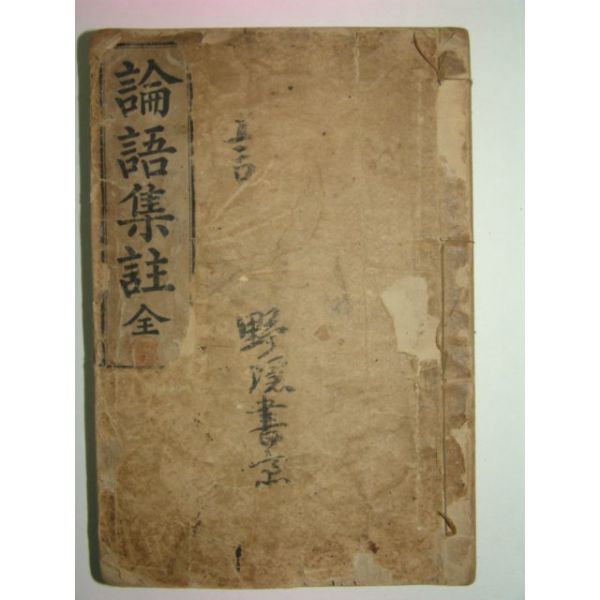 論語集註全
野隱書室